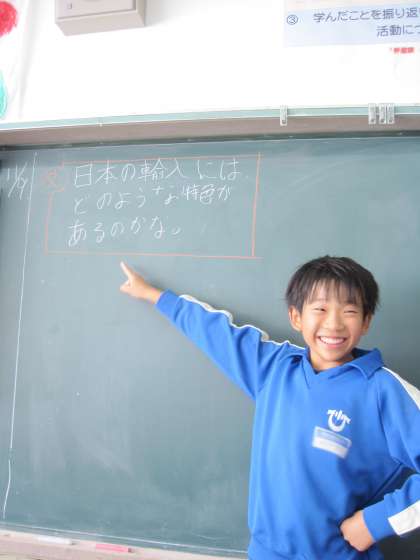 ③ 学んだことを振り返
活動につ
11/9
日本の輸入には、
どのような特色が
あるのかな。